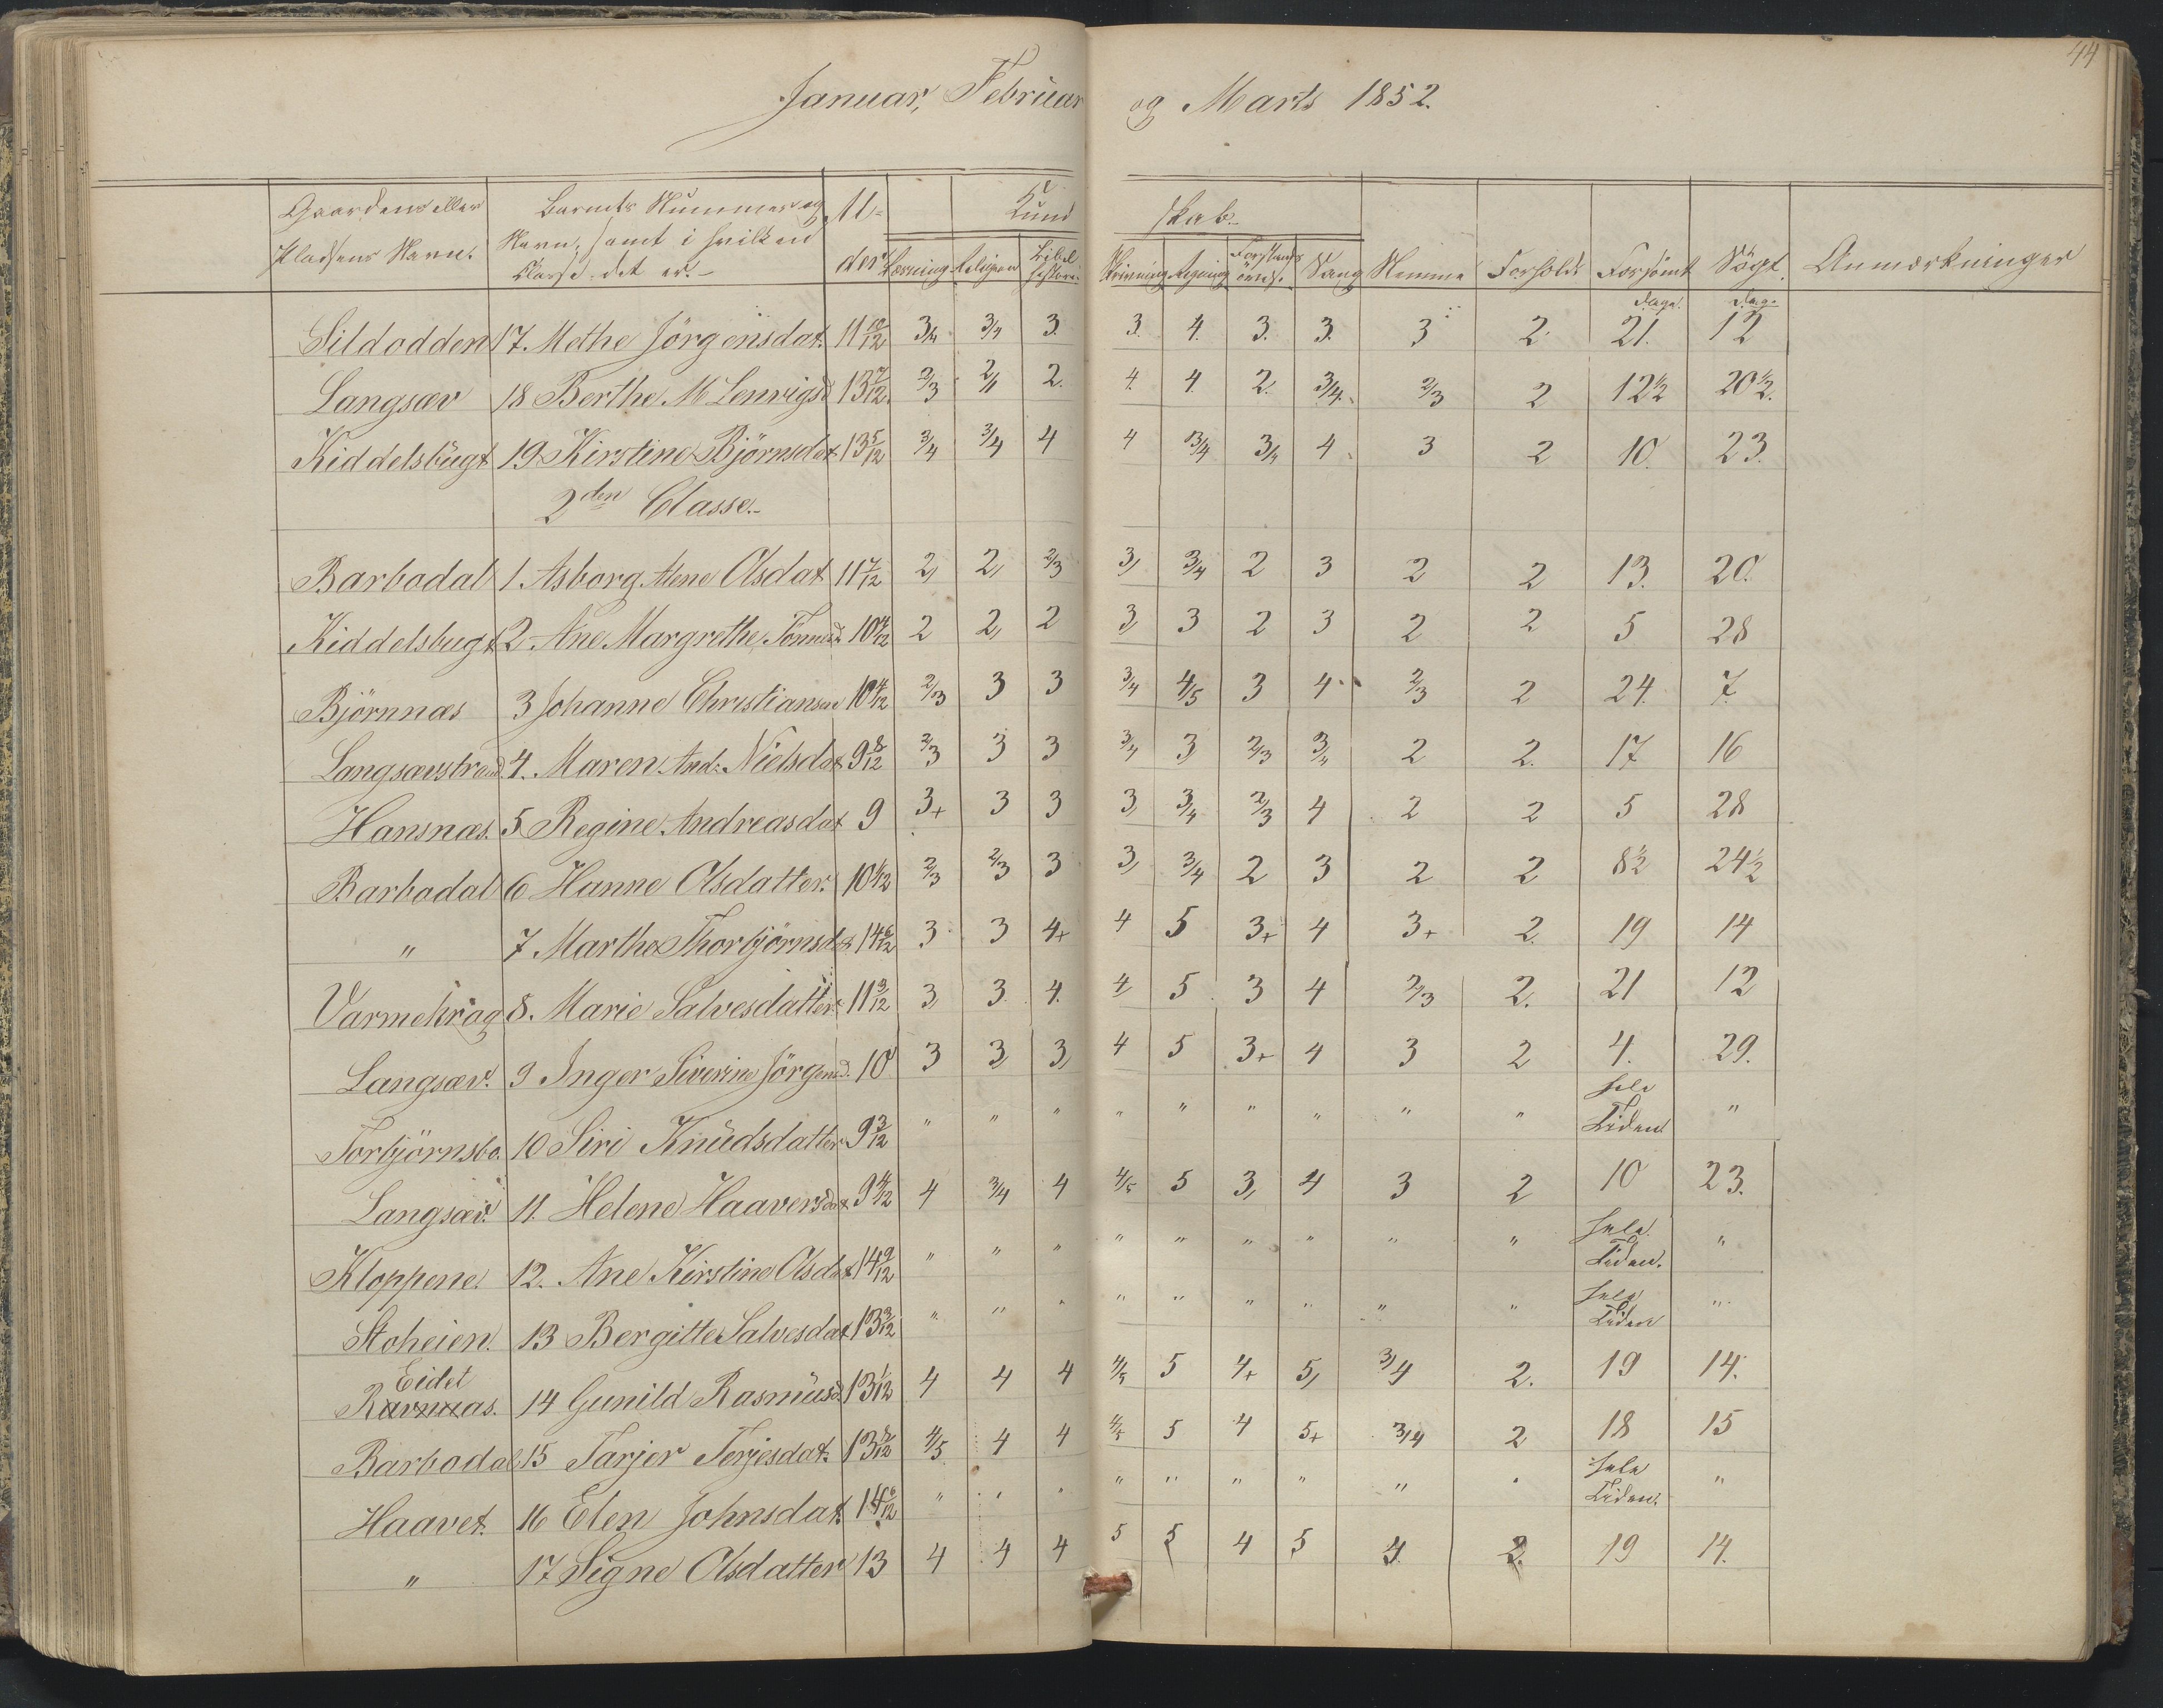 44
Januar, Februar og Marts 1852.
Gaardens eller Pladsens Navn. | Barnets Nummer og Navn, samt i hvilken Classe det er. | Alder | Kundskab. | Nemme | Forhold | Forsömt | Sögt | Anmærkninger
Læsning | Religion | Bibelhistorie | Skrivning | Regning | Forstands övels. | Sang
Dage. | Dage.
Sildodden | 17. Methe Jörgensdat. | 11 10/12 | 3/4 | 3/4 | 3. | 3. | 4. | 3. | 3. | 3 | 2. | 21. | 12
Langsæv | 18 Berthe M Lenvigsd | 13 7/12. | 2/3 | 2/1 | 2. | 4. | 4. | 2. | 3/4. | 2/3 | 2 | 12 1/2 | 20 1/2.
Kiddelsbugt | 19 Kirstine Björnsdat | 13 5/12 | 3/4 | 3/4 | 4 | 4 | 3/4 | 3/4 | 4. | 3 | 2 | 10. | 23.
2den Classe.-
Barbodal | 1. Asborg Alene Olsdat | 11 7/12 | 2, | 2, | 2/3 | 3, | 3/4 | 2 | 3 | 2 | 2 | 13. | 20.
Kiddelsbugt | 2 Ane Margrethe | 2 | 2, | 2 | 3, | 3 | 2 | 3 | 2 | 2 | 5 | 28
Björnnæs | 3 Johanne Christiansd | 10 4/12 | 2/3 | 3 | 3 | 3/4 | 4/5 | 3 | 4 | 2/3 | 2 | 24. | 7.
Langsævstrand | 4. Maren And. Nielsdat | 9 8/12 | 2/3 | 3 | 3 | 3/4 | 3 | 2/3 | 3/4 | 2 | 2. | 17 | 16
Hansnæs. | 5 Regine Andreasdat | 9 | 3+ | 3 | 3 | 3, | 3/4 | 2/3 | 4 | 2 | 2 | 5 | 28
Barbodal | 6 Hanne Olsdatter. | 10 1/12 | 2/3 | 2/3 | 3 | 3, | 3/4 | 2 | 3 | 2 | 2 | 8 1/2 | 24 1/2
" | 7 Marthe Thorbjörnsdat | 14 6/12 | 3 | 3 | 4+ | 4 | 5 | 3+ | 4 | 3+ | 2. | 19 | 14
Varmekrog | 8. Marie Salvesdatter. | 11 3/12 | 3, | 3. | 4. | 4 | 5. | 3 | 4 | 2/3 | 2. | 21 | 12
Langsæv. | 9 Inger Siverine Jörgensd. | 10 | 3 | 3, | 3, | 4 | 5 | 3+ | 4 | 3 | 2 | 4. | 29.
Torbjörnsbo. | 10 Siri Knudsdatter | 9 3/12 | " | " | " | " | " | " | " | " | " | hele Tiden | "
Langsæv. | 11. Helene Haaversdat | 9 4/12 | 4 | 3/4 | 4 | 4/5 | 5 | 3, | 4 | 3 | 2 | 10 | 23.
Kloppene. | 12. Ane Kirstine Olsdat | 14 9/12 | " | " | " | " | " | " | " | " | " | hele Tiden. | "
Stoheien. | 13 Bergitte Salvesdat | 13 3/12 | " | " | " | " | " | " | " | " | " | hele Tiden | "
Eidet
Ravnnæs. | 14 Gunild Rasmusd | 13 1/12 | 4 | 4 | 4 | 4/5 | 5 | 4+ | 5, | 3/4 | 2. | 19 | 14.
Barbodal | 15 Tarjer Terjesdat. | 4/5 | 4 | 4 | 4/5 | 5 | 4 | 5+ | 3/4 | 2 | 18 | 15
Haavet. | 16 Elen Johnsdat. | 14 6/12 | " | " | " | " | " | " | " | " | " | hele Tiden. | "
" | 17 Signe Olsdatter | 13 | 4 | 4 | 4 | 5 | 5 | 4 | 5 | 4. | 2. | 19 | 14.